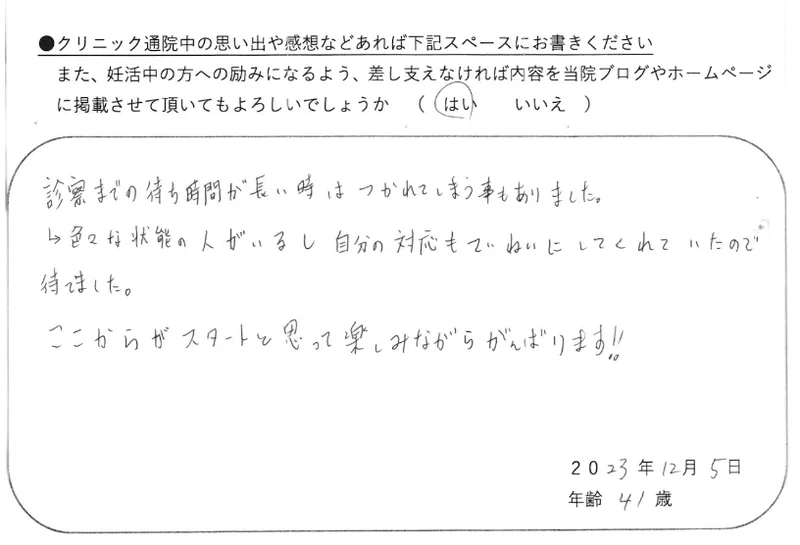 ●クリニック通院中の思い出や感想などあれば下記スペースにお書きください
また、妊活中の方への励みになるよう、差し支えなければ内容を当院ブログやホームページ
に掲載させて頂いてもよろしいでしょうか （ はい いいえ ）
診察までの待ち時間が長い時は つかれてしまう事もありました。
↳色々な状態の人がいるし 自分の対応もていねいにしてくれていたので
待てました。
ここからがスタートと思って楽しみながらがんばります!!
2023年12月5日
年齢 41歳